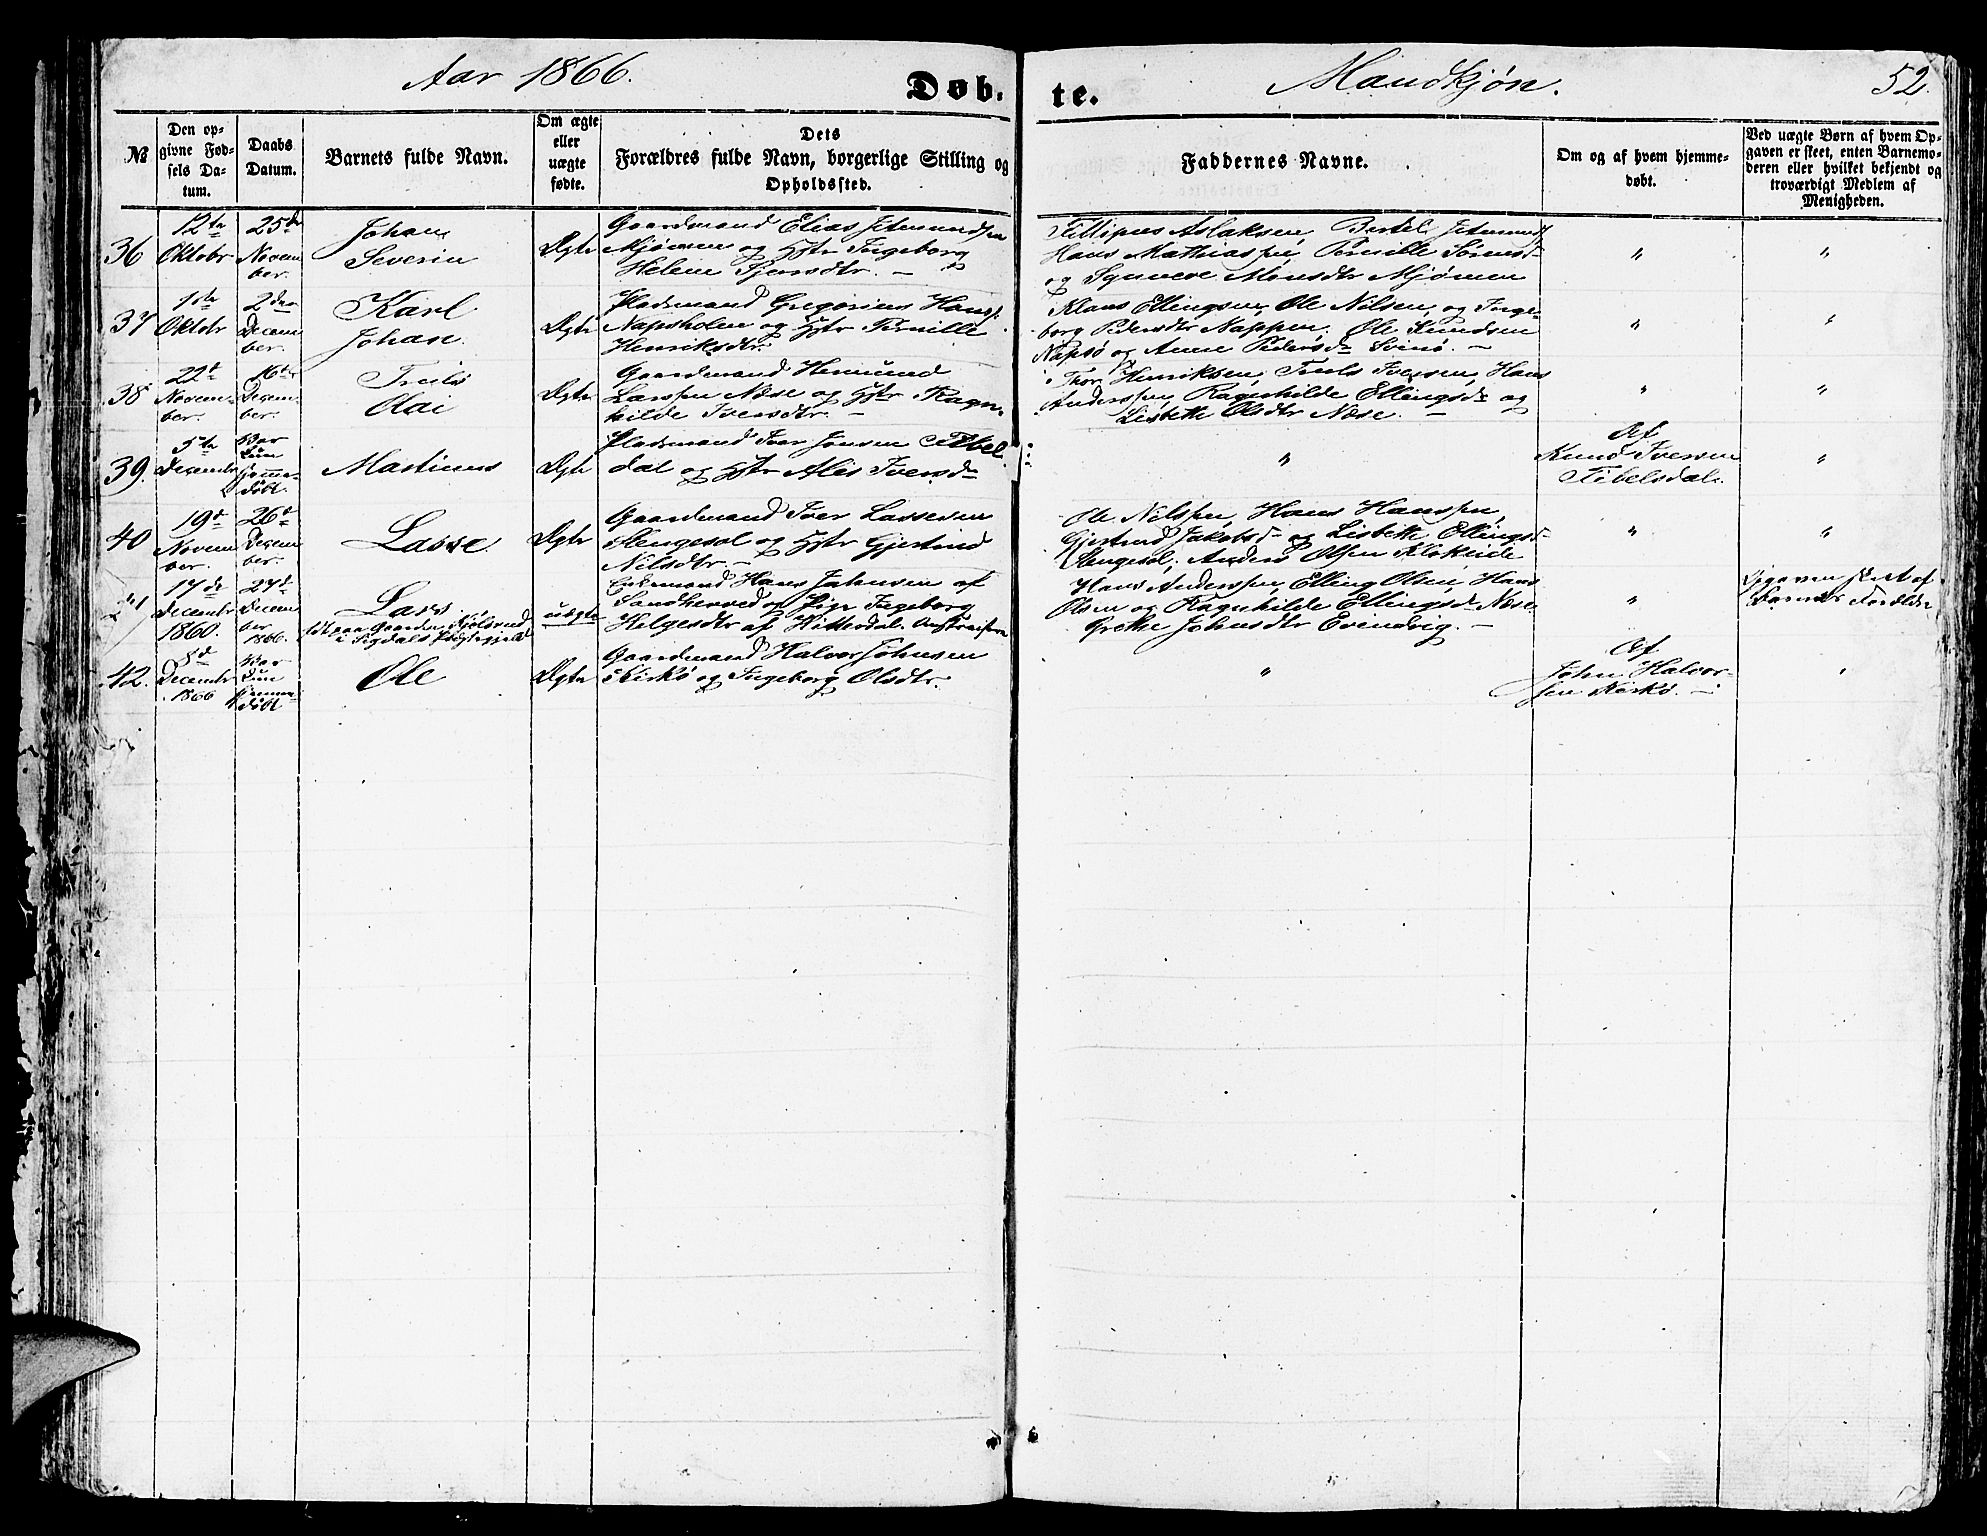 Aar 1866.
Døb- te.
Mandkjøn.
52.
№
Den op-
givne Fød-
sels Da-
tum.
Daabs
Datum.
Barnets fulde Navn.
Om ægte
eller
uægte
fødte.
Dets
Forældres fulde Navn, borgerlige Stilling og
Opholdssted.
Faddernes Navne.
Om og af hvem hjemme-
døbt.
Ved uægte Børn af hvem Op-
gaven er skeet, enten Barnemo-
deren eller hvilket bekjendt og
troværdigt Medlem af
Menigheden.
36
12te
Oktobr
25de
Novem
ber.
Johan
Severin
Ægte
Gaardmand Elias
Mjømen og Hstr Ingeborg
Helene
Fillipus Aslaksen, Bertel
Hans Mathiassen, Pernille
og Synneve Monsdtr Mjömen
"
"
37
1ste
Oktobr
2den
Decem
ber.
Karl
Johan
Ægte
Pladsmand Gregorius Hans
Napsholm og Hstr Pernille
Henriksdtr.
Klaus Ellingsen, Ole Nilsen, og Inge-
borg Pedersdtr Nappen, Ole Knudsen
Napsø og Anne Pedersd Svinö. —
"
"
38
22d
Novem-
ber.
16de
Decem
ber.
Truls
Olai
Ægte
Gaardmand Hermund
Larssen Næse og Hstr Ragn-
hilde Iversdtr. —
Thor Henriksen, Truls Iversen, Hans
Anderssen, Ragnhilde Ellingsd og
Lisbeth Olsdtr Næse. —
"
"
39.
5te
Decembr
Var
Død
Hjemme-
döbt.
Martinus
Ægte
Pladsmand Iver Jonsen
dal og Hstr Alis Iversd
"
Af
Knud Iversen
Tibelsdal.
"
40
19d
Novem
ber.
26d
Decem
ber.
Lasse
Ægte
Gaardmand Iver Lassesen
Stengesol og Hstr Gjertrud
Nilsdtr. —
Ole Nilssen, Hans Hanssen,
Gjertrud Jakobsd og Lisbeth Ellingsd
Stengesol, Anders Olsen Kløkeide
"
"
41
17de
Decembr
1860.
27d
Decem
ber
1866.
Lars
født paa Gaarden
i Sigdals Præstegjeld
uægte
Hans Johnsen af
Sandherred og Pige Ingeborg
Helgesdtr af Hitterdal.
Hans Anderssen, Elling Olsen, Hans
Olsen og Ragnhilde Ellingsd Næse
Grethe Johnsdtr Evendvig. —
"
Opgaven skeet af
Barnets Forældre
42.
8d
Decembr
1866
Var
Død
Hjemme
döbt
Ole
Ægte
Gaardmand Halvor Johnsen
Kirkö og Ingeborg Olsdtr.
"
Af
John Halvor-
sen Kirkö. —
"